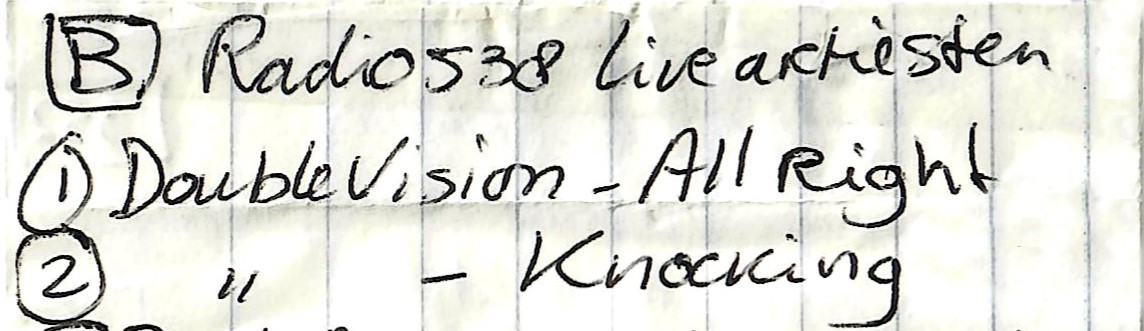 B Radio 538 live artiesten
1 Double Vision - All Right
2 " - Knocking